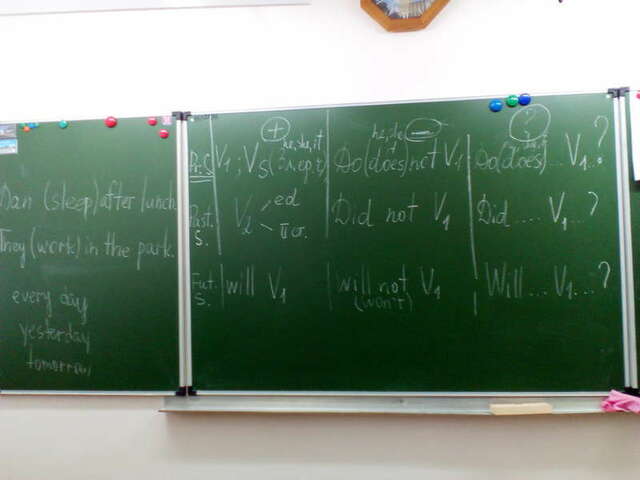 Dan (sleep) after lunch.
They (work) in the park.
every day
yesterday
tomorrow
+ he, she, it
he, she, it −
?
Pr.S. V1, Vs (he, she, it) Do (does) not V1 Do (does) ... V1...?
Past. S. V2 ed Did not V1 Did .... V1...?
II ст.
Fut. S. will V1 will not V1 Will ... V1...?
(won't)